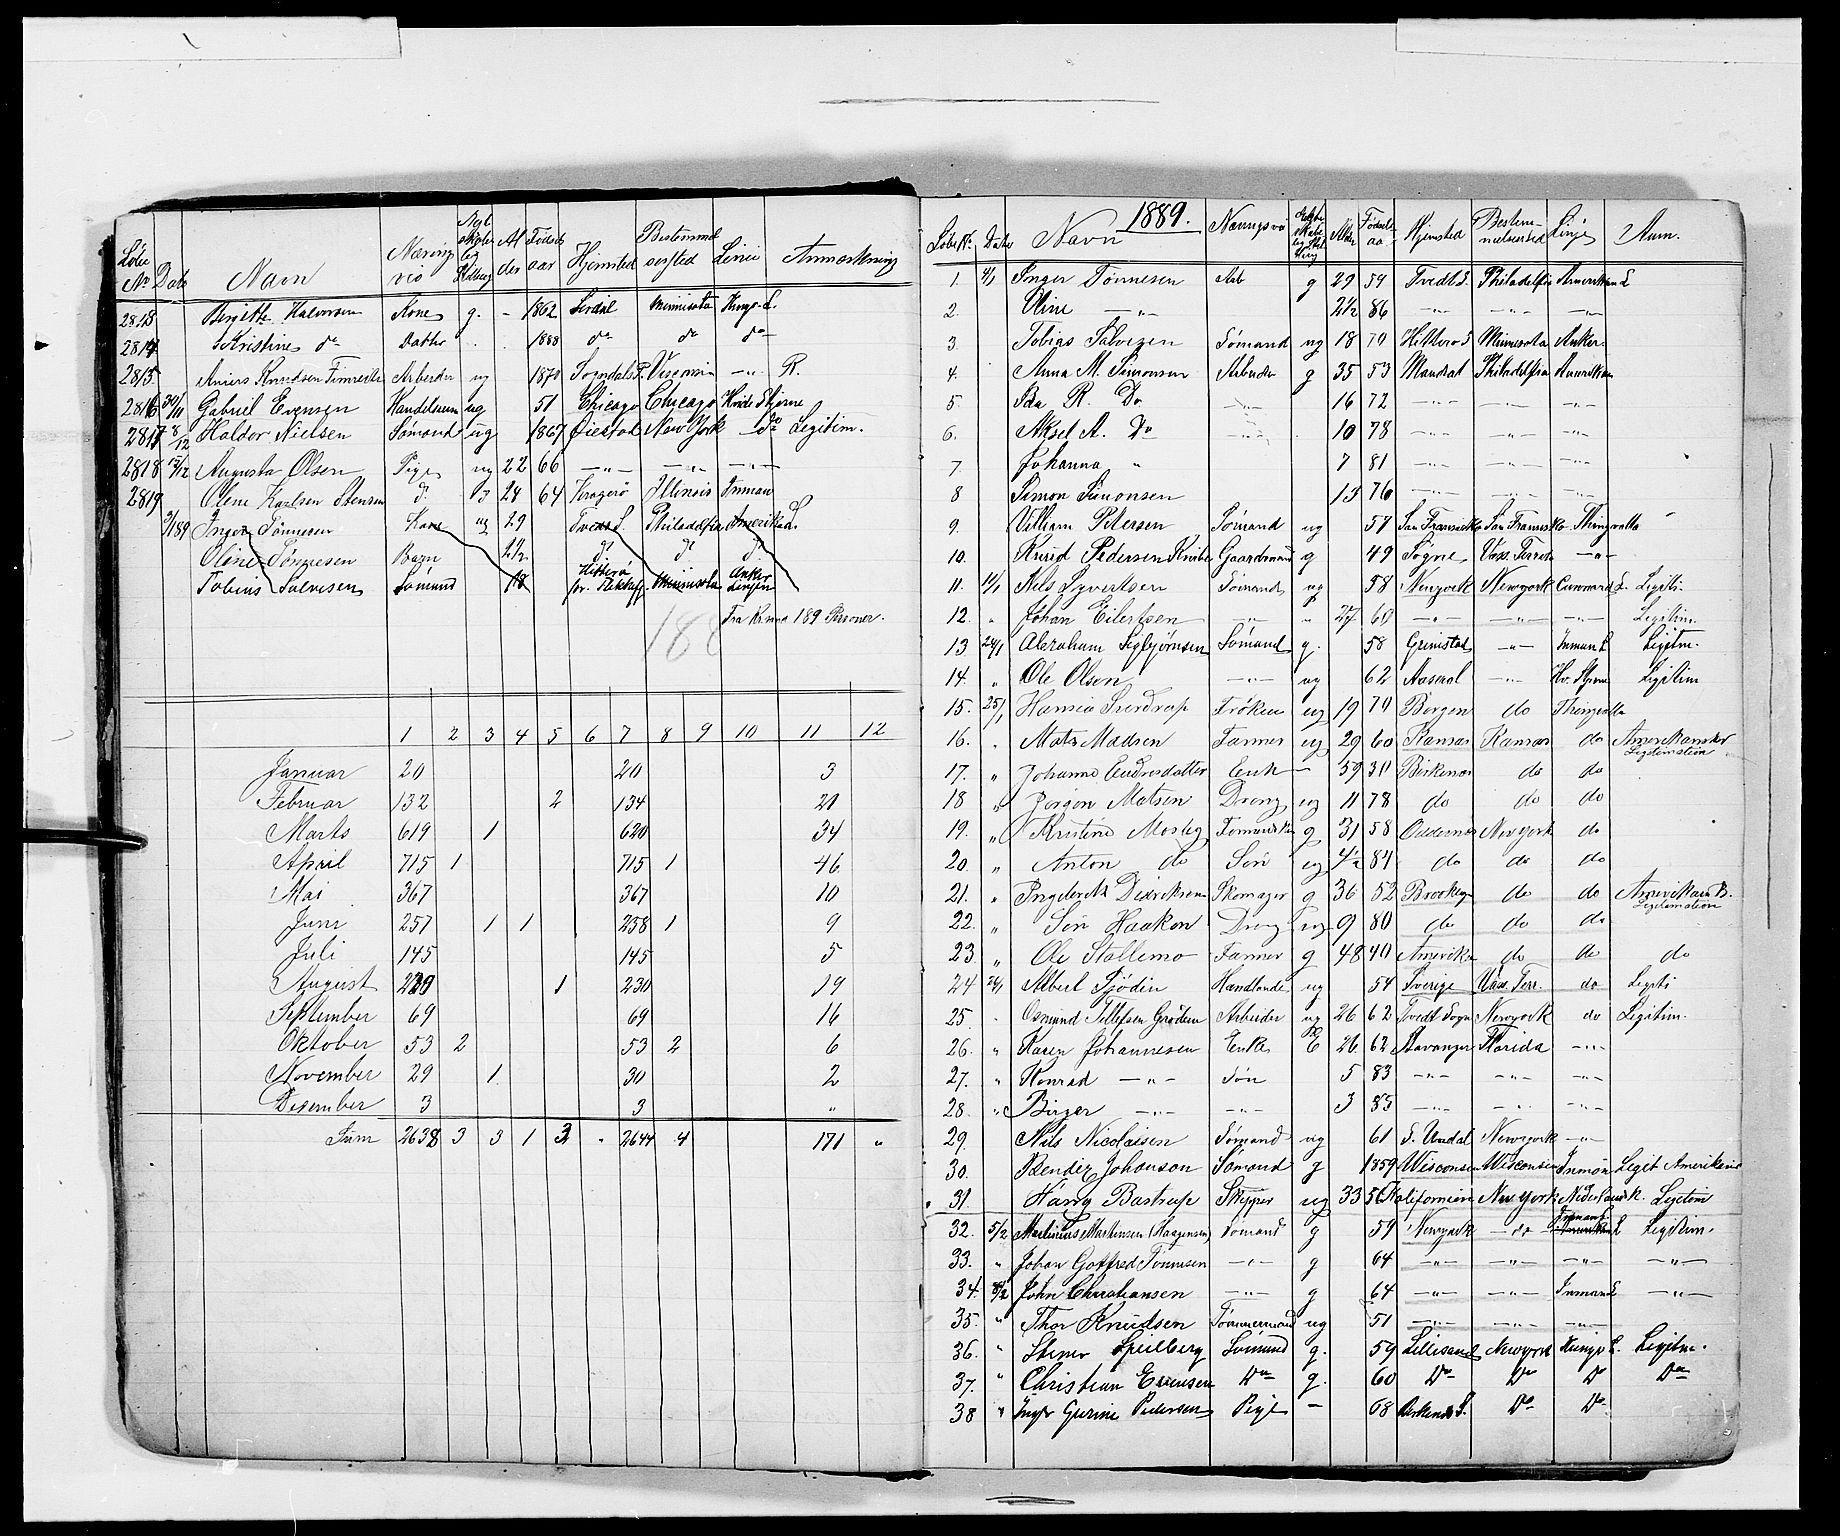 Løbe No Dato Navn Nærings vei Ægteskabelig Stilling Alder Fødsels aar Hjemsted Bestemmelsessted Linie Anmærkning
2813 Birgitte Halvorsen Kone g. - 1862 Sirdal Minnisota Kings L.
2814 Kristine do Datter 1888 do do do
2815 Anders Knudsen Arbeider ug 1870 Sogndal Visconsin -"- R.
2816 30/11 Gabriel Evensen Handelsm ug 51 Chicago Chicago Hvide Stjerne
2817 8/12 Haldor Nielsen Sømand ug 1867 Øiestad New York do Legitim.
2818 15/12 Augusta Olsen Pige ug 22 66 -"- -"- -"-
2819 Olene Karlsen Stensen d. 24 64 Kragerø Illinois Inman
2/1 89 Inger Tønnesen Kone ug 29 Tveds S. Philadelfia Amerika L.
Oline Tønnesen Barn 2½ d. d. d.
Tobias Salvesen Sømand 18 Hitterø pr. Flekkefj Minnisota Anker Linjen
Fra Kr.sand 189 Personer.
188
1 2 3 4 5 6 7 8 9 10 11 12
Januar 20 20 3
Februar 132 2 134 21
Marts 619 1 620 34
April 715 1 715 1 46
Mai 367 367 10
Juni 257 1 1 258 1 9
Juli 145 145 5
August 229 1 230 19
September 69 69 16
Oktober 53 2 53 2 6
November 29 1 30 2
Desember 3 3 "
Sum 2638 3 3 1 3 " 2644 4 171 "
1889.
Løbe No. Dato Navn Næringsvei Alder Fødsels aar Hjemsted Bestemmelsessted Linje Anm.
1. 4/1 Inger Tønnesen Arb g 29 59 Tvedt S. Philadelfia Amerikan L
2. Oline -"- 2½ 86 -"- -"- -"-
3. Tobias Salvesen Sømand ug 18 70 Hitterø S Minnisota Anker
4. Anna M. Simonsen Arbeider g 35 53 Mandal Philadelfia Amerikan
5. Ida R. Do -"- 16 72 -"- -"- -"-
6. Aksel A. Do -"- 10 78 -"- -"- -"-
7. Johanna " 7 81 -"- -"- -"-
8 Simon Simonsen 13 76 -"- -"- -"-
9. Villiam Petersen Sømand ug 57 San Fransisko San Fransisko Thingvalla
10. Knud Pedersen Knibe Gaardmand g 49 Søgne Vass. Terr. -"-
11. 11/1 Nils Syvertsen Sømand ug 58 Newyork Newyork Cunnard L. Legiti.
12. " Johan Eilertsen " " 27 60 -"- -"- -"- Legitim.
13 24/1 Abraham Sigbjørnsen Sømand g. 58 Grimstad -"- Inman L Legitm.
14. " Ole Olsen -"- ug 62 Aaseral -"- Hv. Stjerne Legitim
15. 25/1 Hansea Sverdrup Frøken ug 19 70 Bergen do Thingvalla
16. " Mats Madsen Farmer ug 29 60 Kansas Kansas do Amerikansker Legitimation
17. " Johanne Endresdatter Enke - 59 30 Birkenæs do do
18 " Jørgen Matsen Dreng ug 11 78 do do do
19. " Kristine Mosby Sømandsk g 31 58 Oddernæs New york do
20. " Anton do Søn ug 4½ 84 do do do
21. " Ingebreth Didriksen Skomager g 36 52 Brooklyn do do Amerikansk. Legitimation
22. " Søn Haakon Dreng ug 9 80 do do do
23. " Ole Stallemo Farmer g 48 40 Amerika do do do
24 26/1 Albert Sjødin Handlande ug 54 Sverige Vass. Terr. do Legiti
25. Osmund Tellefsen Arbeider ug 26 62 Tvedt Sogn Newyork do Legitim.
26. " Karen Johannesen Enke E 26 62 Stavanger Florida -"-
27. " Konrad -"- Søn 5 83 -"- -"- -"-
28. " Birger -"- -"- 3 85 -"- -"- -"-
29. Nils Nicolaisen Sømand ug 61 S. Undal Newyork -"-
30. Bendix Johanson Sømand g 1859 Wisconsin Wisconsin Inman Legit Amerikansk
31. Harry Bastrup Skipper ug 33 56 Kalifornien New york Nederlandsk. Legitim
32. 5/2 Martinius Martinsen (Haagensen) Sømand g 59 Newyork do Inman L Legitim.
33. " Johan Gotfred Tønnesen -"- g 64 -"- -"- -"- -"-
34. 8/2 John Christiansen -"- g 64 -"- -"- Inman L -"-
35. " Thor Knudsen Tømmermand ug 51 -"- -"- -"-
36. " Stener Speilberg Sømand g. 59 Lillesand Newyork Kings L. Legitm.
37. " Christian Evensen Do g. 60 Do Do Do Do
38 " Inger Gurine Pedersen Pige - 68 Birkenes S. Do Do